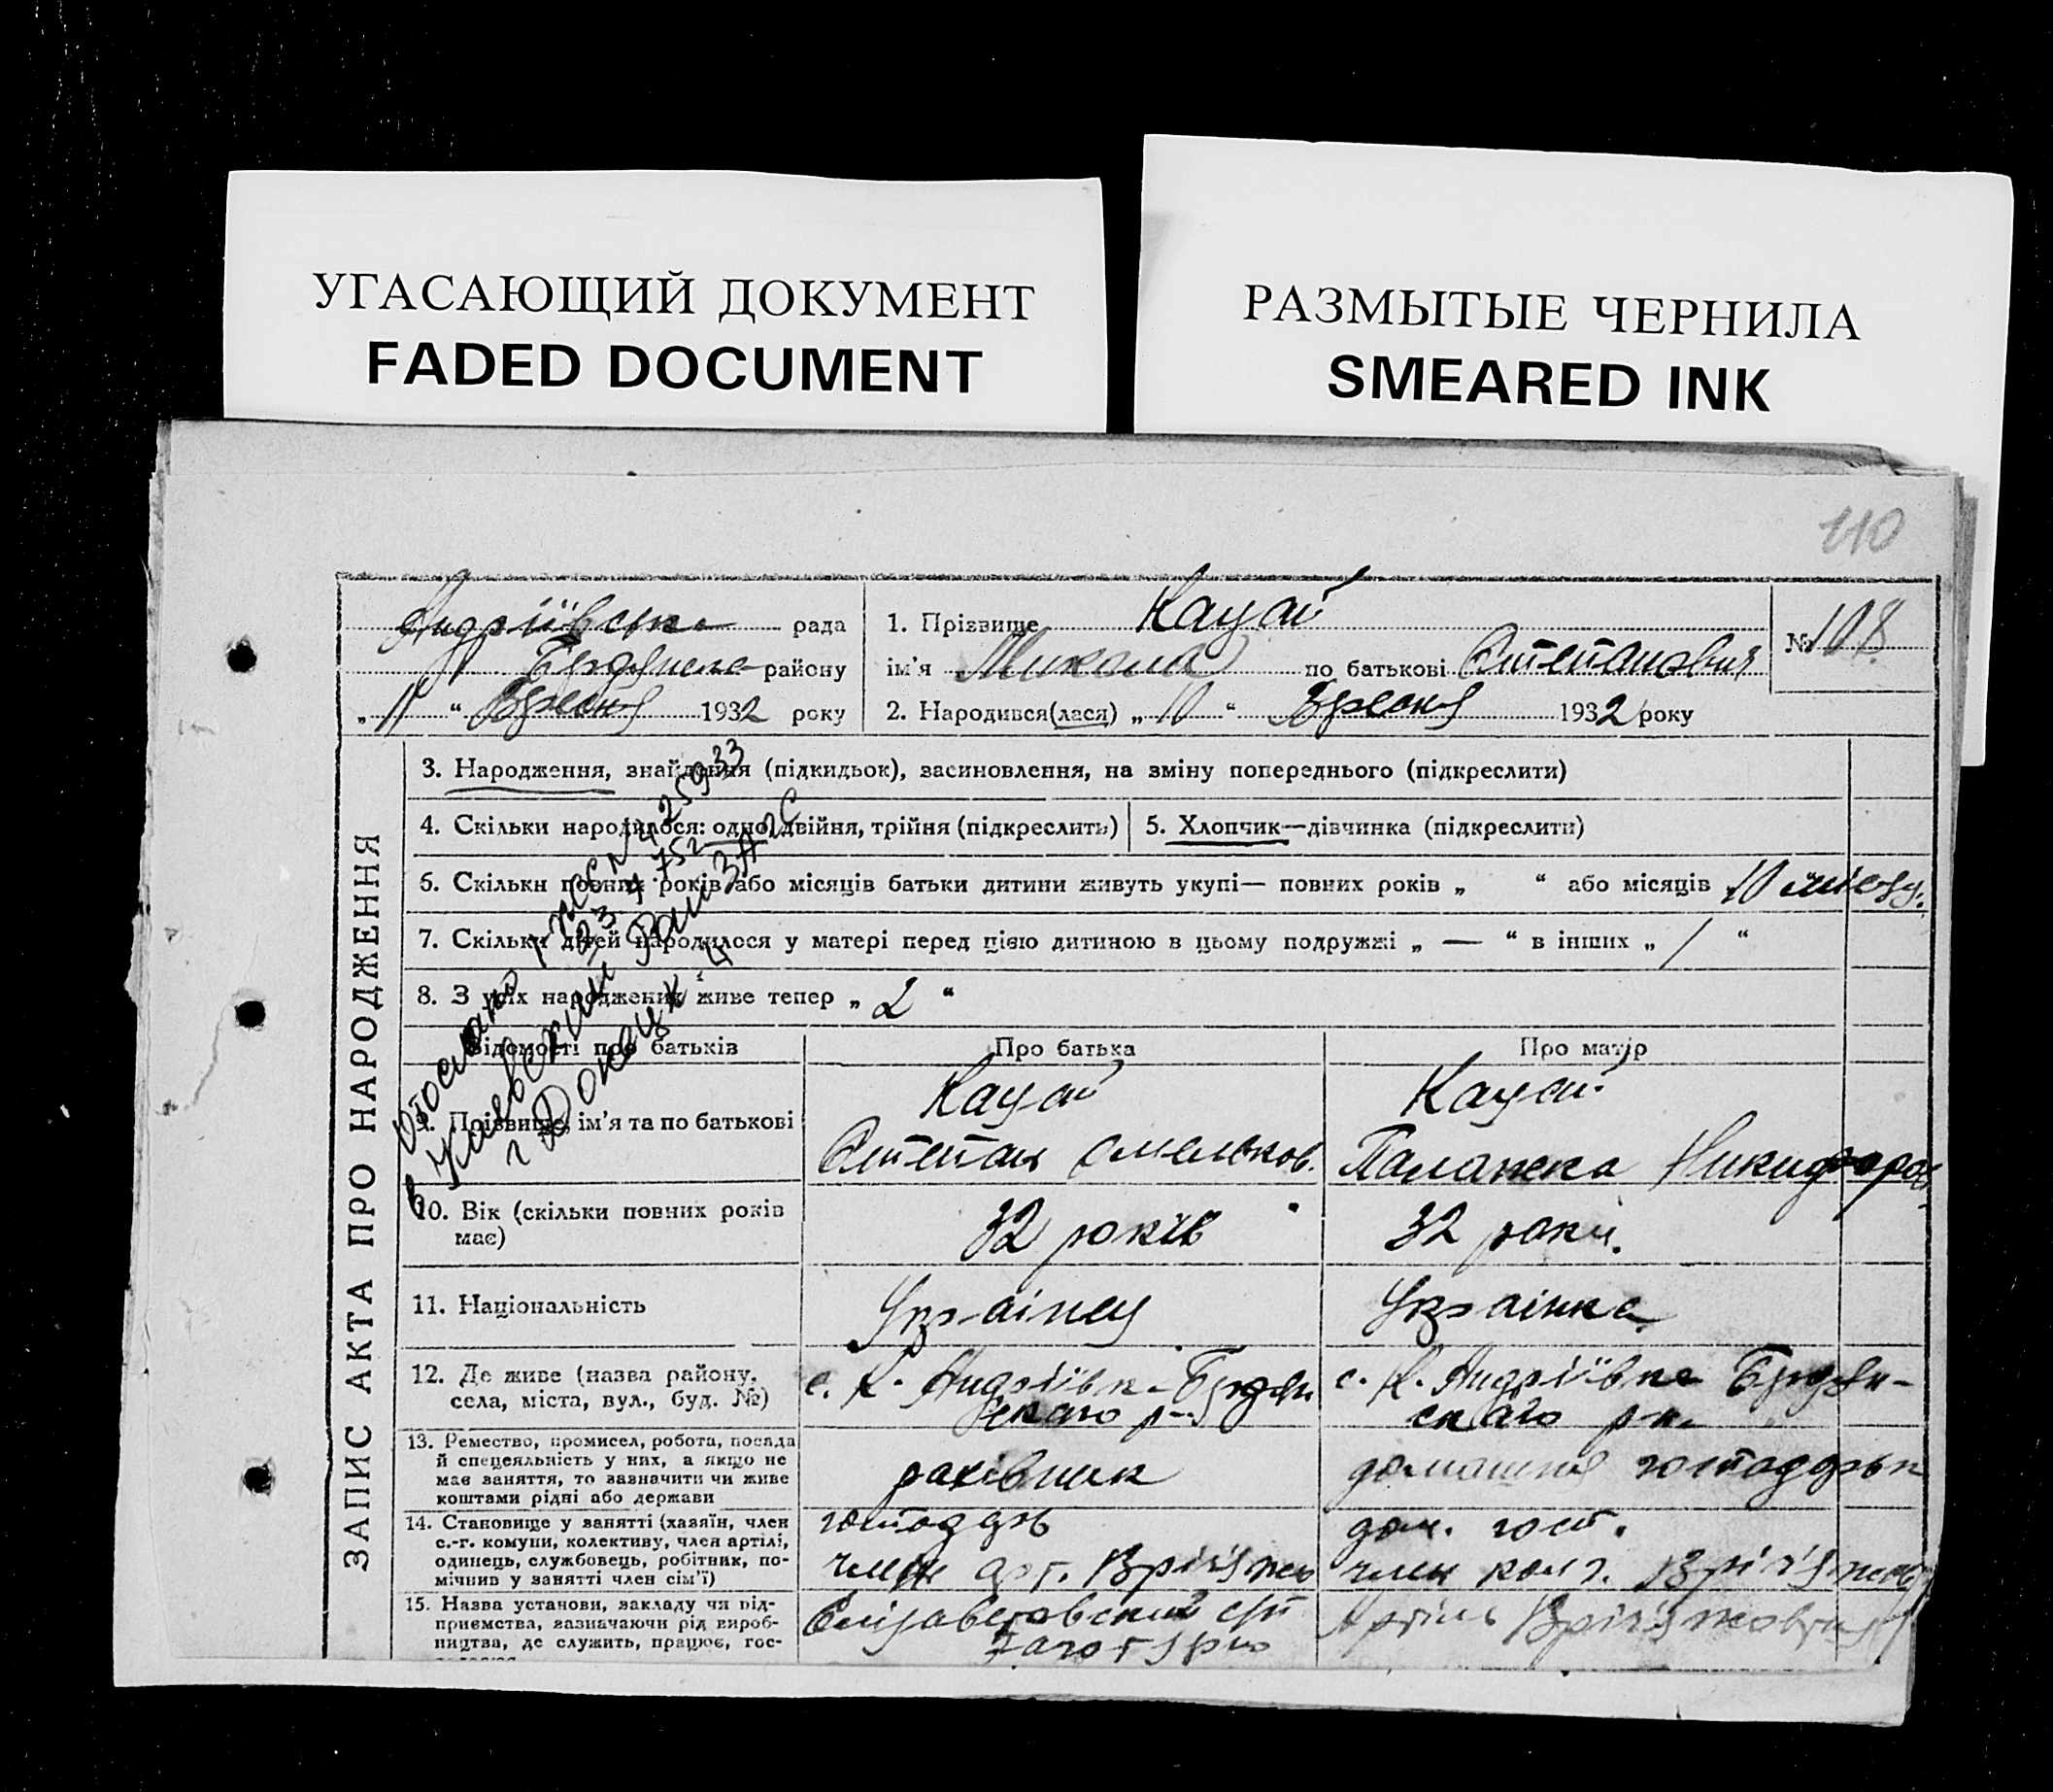 УГАСАЮЩИЙ ДОКУМЕНТ
FADED DOCUMENT
РАЗМЫТЫЕ ЧЕРНИЛА
SMEARED INK
110
Андріївська рада
району
„ 11 “ Вресня 1932 року
1. Прізвище Кацай
ім'я Микола по батькові Степанович
2. Народився(лася) „ 10 “ Вресня 1932 року
№ 108
ЗАПИС АКТА ПРО НАРОДЖЕННЯ
3. Народження, знайдення (підкидьок), засиновлення, на зміну попереднього (підкреслити)
4. Скільки народилося: одно, двійня, трійня (підкреслить)
5. Хлопчик—дівчинка (підкреслити)
6. Скільки повних років або місяців батьки дитини живуть укупі— повних років „ “ або місяців 10
7. Скільки дітей народилося у матері перед цією дитиною в цьому подружжі „ — “ в інших „ / “
8. З усіх народжених живе тепер „ 2 “
Відомості про батьків
Про батька
Про матір
9. Прізвище, ім'я та по батькові
Кацай
Степан Омельков.
Кацай
Палажка Никифоров
10. Вік (скільки повних років
має)
32 років
32 роки.
11. Національність
Українец
Українка
12. Де живе (назва району,
села, міста, вул., буд. №)
с. К. Андріївка
ского р-
с. К. Андріївка
ского рн.
13. Ремество, промисел, робота, посада
й спецеяльність у них, а якщо не
має заняття, то зазначити чи живе
коштами рідні або держави
рахівник
домашня господарк
14. Становище у занятті (хазяїн, член
с.-г. комуни, колективу, член артілі,
одинець, службовець, робітник, по-
мічнив у занятті член сім'ї)
член
дом. госп.
член колг.
15. Назва установи, закладу чи під-
приємства, зазначаючи рід вироб-
ництва, де служить, працює, гос-
Артіль
г Донецк